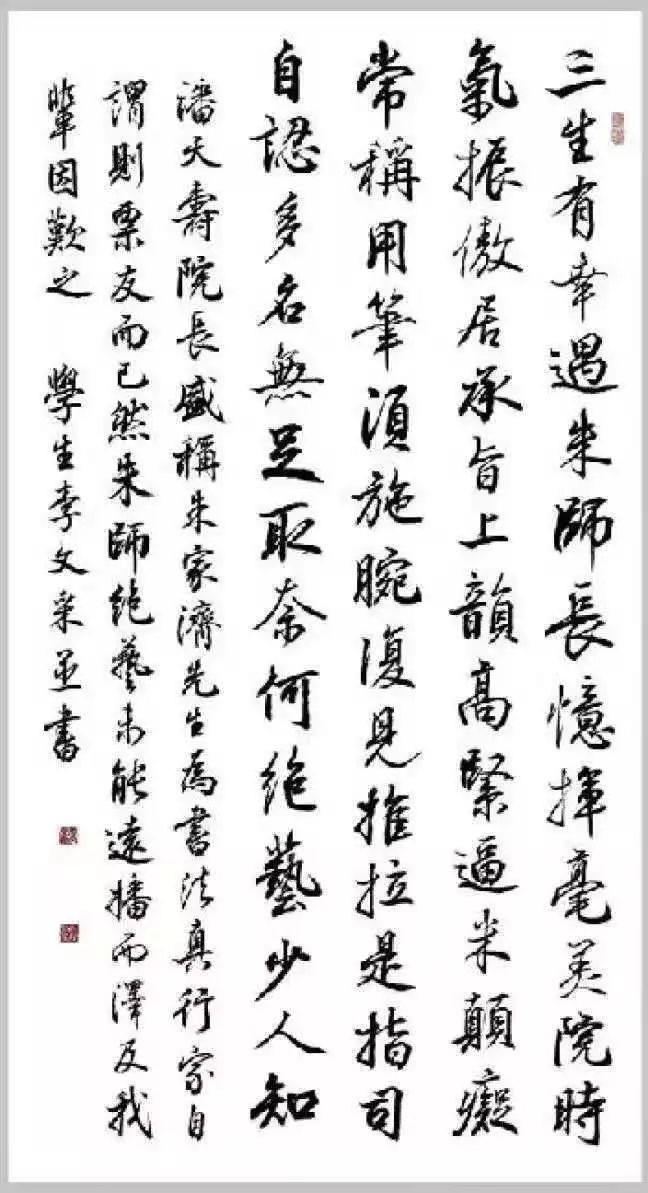 三生有幸遇朱師長憶揮毫美院時
氣振傲居承旨上韻高緊逼米顛癡
常稱用筆須施腕復見推拉是指司
自認多名無足取奈何絶藝少人知
潘天壽院長盛稱朱家濟先生為書法真行家自
謂則票友而已然朱師絶藝未能遠播而澤及我
輩因歎之 學生李文采並書